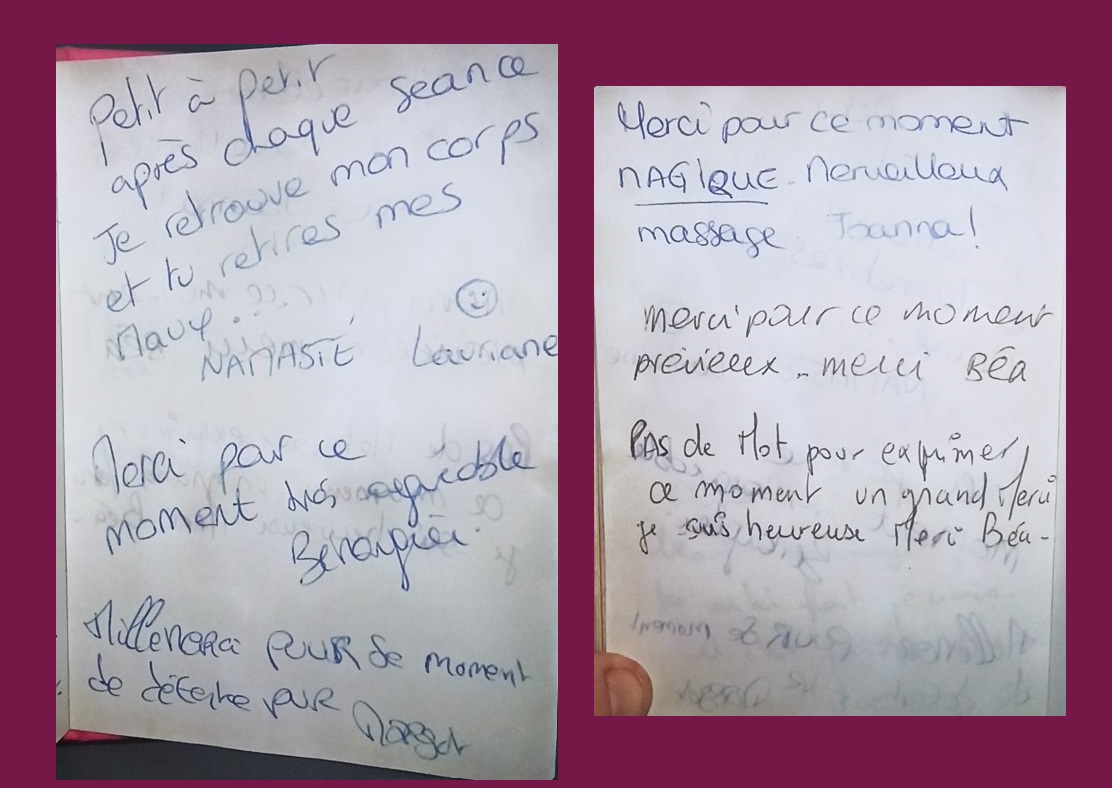 Petit à petit
après chaque seance
Je retrouve mon corps
et tu retires mes
Maux..
NAMASTÉ Lauriane
Merci par ce
moment très agréable
Millemerci POUR se moment
de détente pure
Margot
Merci pour ce moment
MAGIQUE. Merveilleux
massage Joanna!
merci pour ce moment
précieux.. merci BÉa
PAS de Mot pour exprimer,
ce moment un grand Merci
je suis heureuse Merci Béa-